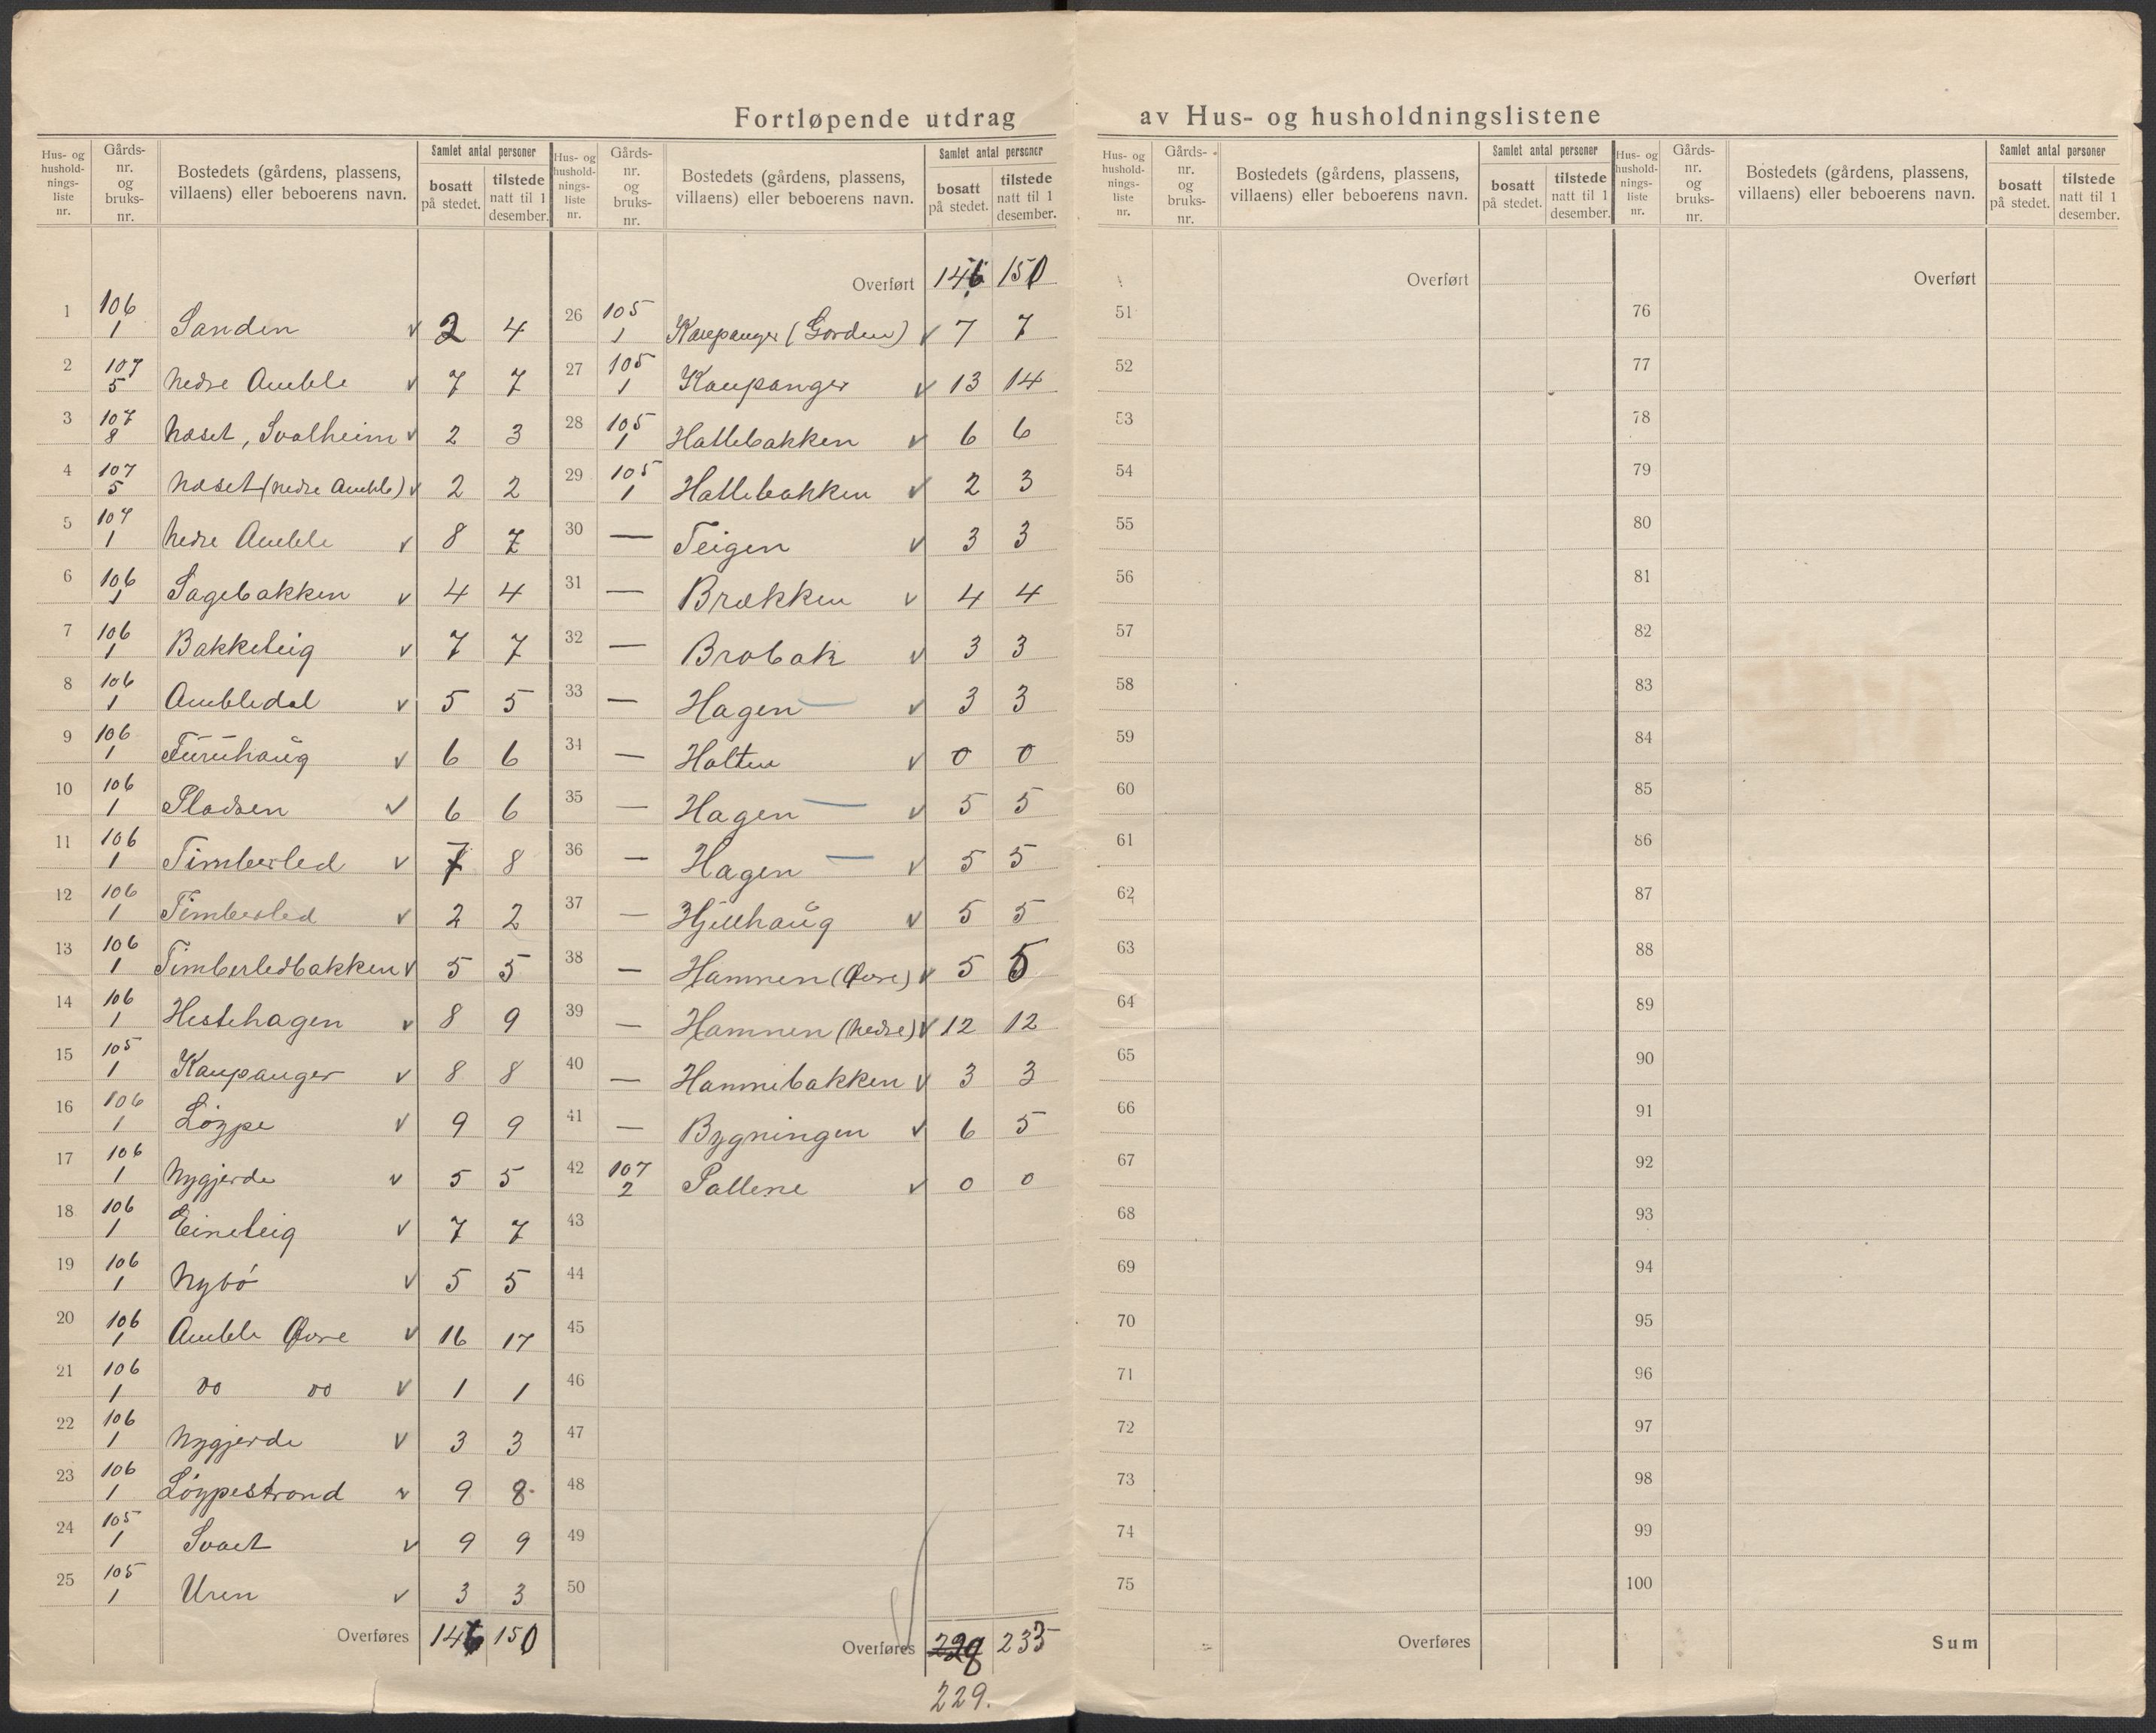 Fortløpende utdrag av Hus- og husholdningslistene
Hus- og hushold-nings-liste nr. | Gårds-nr. og bruks-nr. | Bostedets (gårdens, plassens, villaens) eller beboerens navn. | Samlet antal personer | bosatt på stedet. | tilstede natt til 1 desember.
1 106/1 Sanden v 2 4
2 107/5 Nedre Amble v 7 7
3 107/8 Næset, Svalheim v 2 3
4 107/5 Næset (Nedre Amble) v 2 2
5 107/1 Nedre Amble v 8 7
6 106/1 Sagebakken v 4 4
7 106/1 Bakketeig v 7 7
8 106/1 Ambledal v 5 5
9 106/1 Furuhaug v 6 6
10 106/1 Pladsen v 6 6
11 106/1 Timberled v 7 8
12 106/1 Timberled v 2 2
13 106/1 Timberledbakken v 5 5
14 106/1 Hestehagen v 8 9
15 105/1 Kaupanger v 8 8
16 106/1 Løype v 9 9
17 106/1 Nygjerde v 5 5
18 106/1 Eineteig v 7 7
19 106/1 Nybø v 5 5
20 106/1 Amble Øvre v 16 17
21 106/1 do do v 1 1
22 106/1 Nygjerde v 3 3
23 106/1 Løypestrand v 9 8
24 105/1 Svaet v 9 9
25 105/1 Uren v 3 3
Overføres 146 150
Hus- og hushold-nings-liste nr. | Gårds-nr. og bruks-nr. | Bostedets (gårdens, plassens, villaens) eller beboerens navn. | Samlet antal personer | bosatt på stedet. | tilstede natt til 1 desember.
Overført 146 150
26 105/1 Kaupanger (Gorden) v 7 7
27 105/1 Kaupanger v 13 14
28 105/1 Hallebakken v 6 6
29 105/1 Hallebakken v 2 3
30 — Teigen v 3 3
31 — Brækken v 4 4
32 — Brobak v 3 3
33 — Hagen — v 3 3
34 — Holten v 0 0
35 — Hagen — v 5 5
36 — Hagen — v 5 5
37 — Hjellhaug v 5 5
38 — Hamnen (Øvre) v 5 5
39 — Hamnen (Nedre) v 12 12
40 — Hamnebakken v 3 3
41 — Bygningen v 6 5
42 107/2 Pallene v 0 0
43
44
45
46
47
48
49
50
Overføres 228 233
229.
Hus- og hushold-nings-liste nr. | Gårds-nr. og bruks-nr. | Bostedets (gårdens, plassens, villaens) eller beboerens navn. | Samlet antal personer | bosatt på stedet. | tilstede natt til 1 desember.
Overført
51
52
53
54
55
56
57
58
59
60
61
62
63
64
65
66
67
68
69
70
71
72
73
74
75
Overføres
Hus- og hushold-nings-liste nr. | Gårds-nr. og bruks-nr. | Bostedets (gårdens, plassens, villaens) eller beboerens navn. | Samlet antal personer | bosatt på stedet. | tilstede natt til 1 desember.
Overført
76
77
78
79
80
81
82
83
84
85
86
87
88
89
90
91
92
93
94
95
96
97
98
99
100
Sum